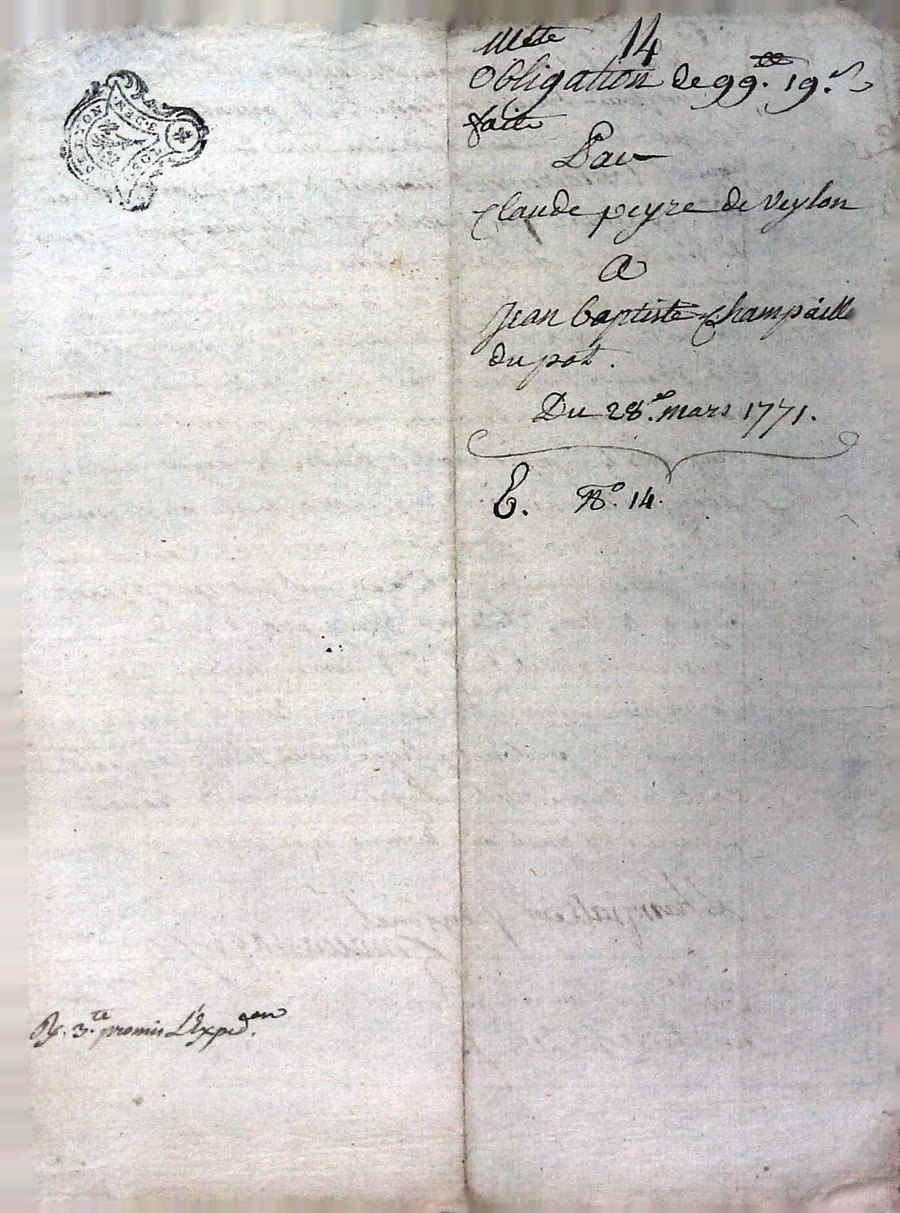 14
obligation de 99.tt 19.s
faite
Par
Claude peyre de Veylon
A
Jean baptiste Champaille
du pot.
Du 28.e mars 1771.
E. No. 14.
3.tt promis L'Exped.on